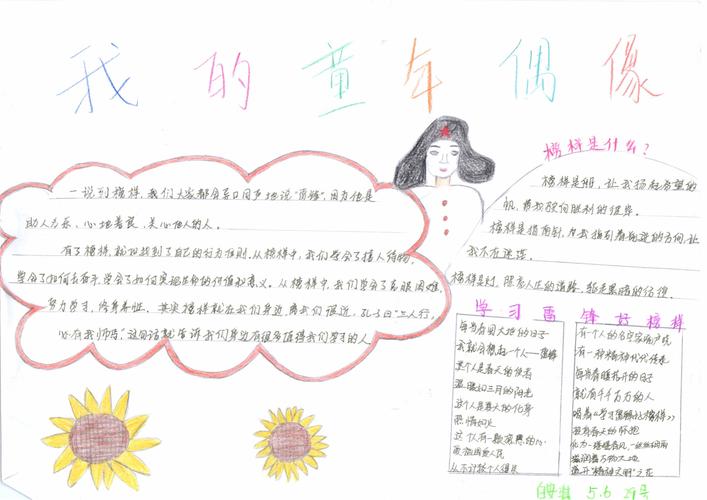 我的童年偶像
一说到榜样,我们大家都会异口同声地说"雷锋",因为他是
助人为乐、心地善良、关心他人的人。
有了榜样,就也找到了自己的行为准则.从榜样中,我们学会了待人待物,
学会了如何去奋斗,学会了如何实现生命的价值和意义。从榜样中,我们学会了克服困难,
努力学习,修身养性。其实榜样就在我们身边,离我们很近,孔子曰"三人行,
必有我师焉",这句话就告诉我们身边有很多值得我们学习的人
榜样是什么?
榜样是船,让我扬起希望的
帆,带我驶向胜利的彼岸。
榜样是指南针,为我指引着前进的方向,让
我不在迷茫。
榜样是灯,照亮人生的道路,驱走黑暗的彷徨
学习雷锋好榜样
每当春回大地的日子
我就会想起一个人——雷锋
这个人是春天的使者
温暖如三月的阳光
这个人是春天的化身
热情如火
这个人有一颗滚烫的心
从不计较个人得失
有一个人的名字家喻户晓
有一种精神代代传承
每当春暖花开的日子
就有千千万万的人
唱着《学习雷锋好榜样》
化为一缕缕春风,一丝丝细雨
滋润着万物大地
盛开"精神文明"之花
5.6 29号